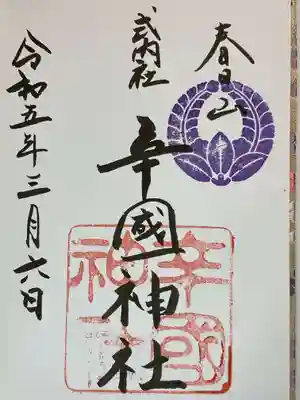 春日山
式内社
辛國神社
令和五年三月六日
辛國
神社